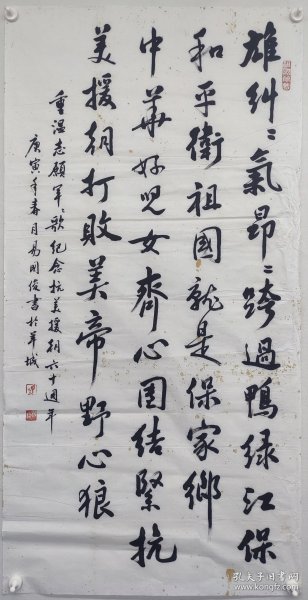 雄糾〻氣昂〻跨過鴨绿江保
和平衛祖國就是保家鄉
中華好兒女齊心团結緊抗
美援朝打敗美帝野心狼
重温志願軍〻歌纪念抗美援朝六十週年
庚寅年春月易明俊書於羊城
孔夫子旧书网